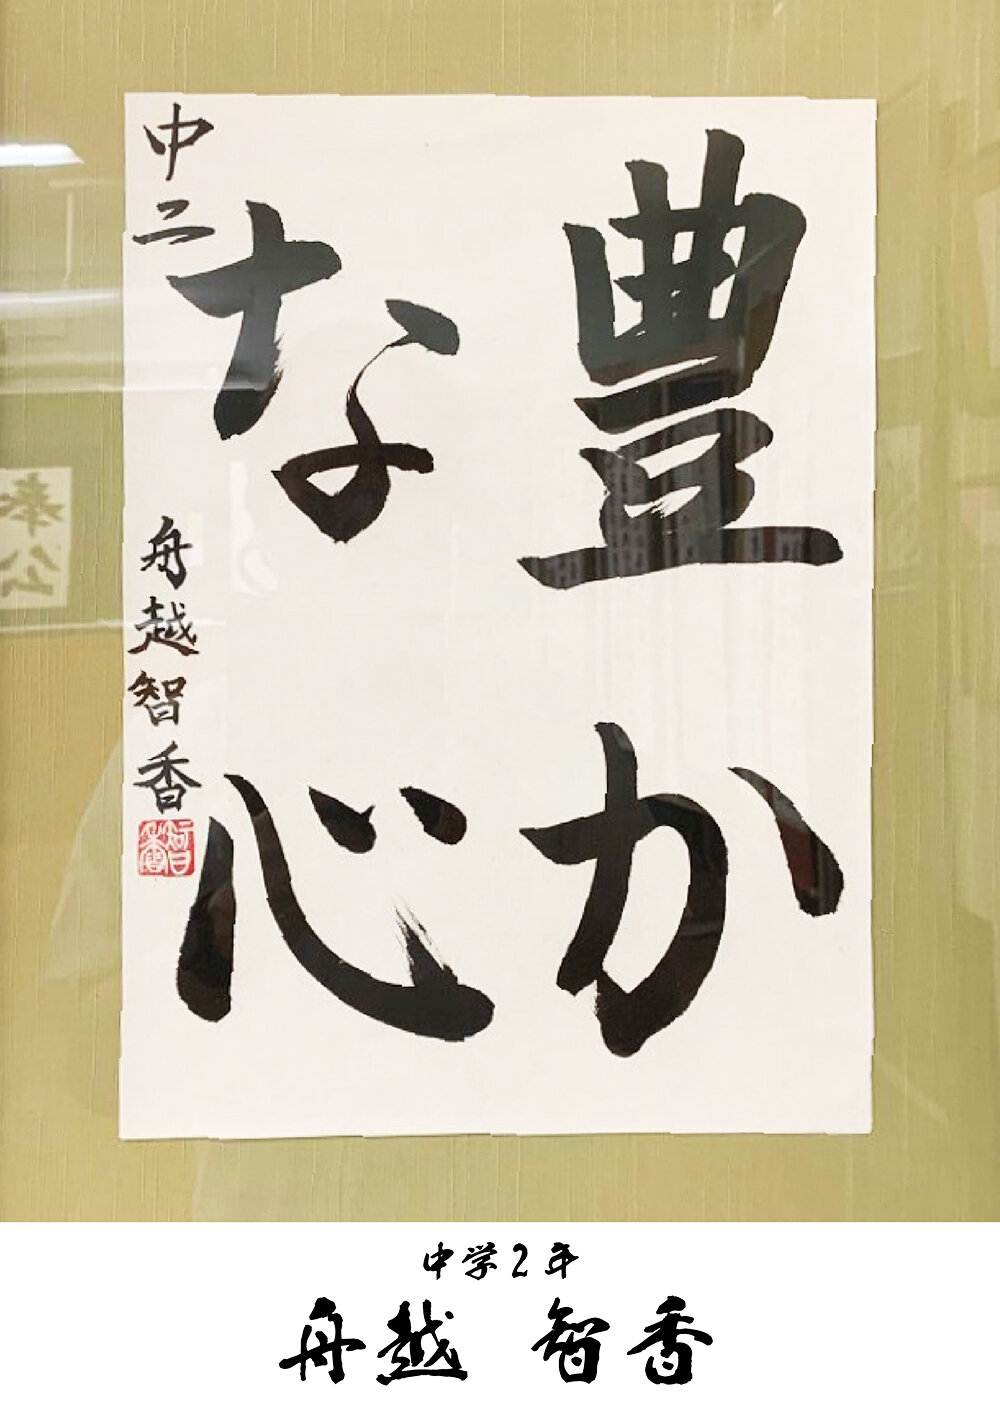 豊か
な心
中二 舟越智香
智香
奉公
中学2年
舟越 智香